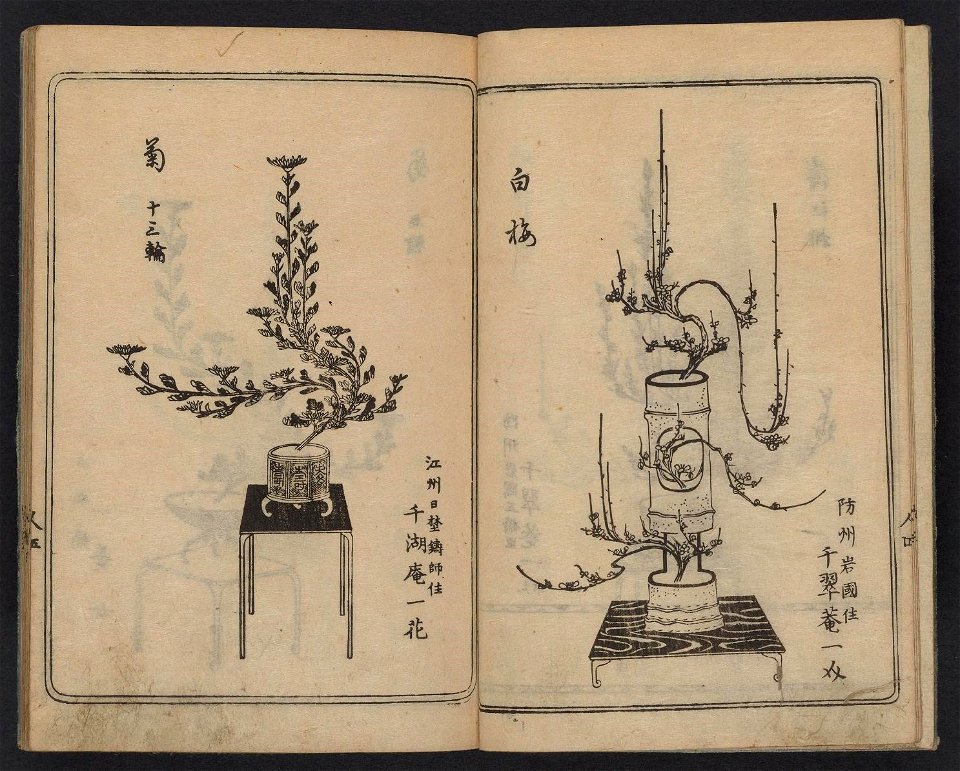 白梅
防州岩國住
千翠菴一
人四
菊
十三輪
江州日埜鑄師住
千湖庵一花
人五